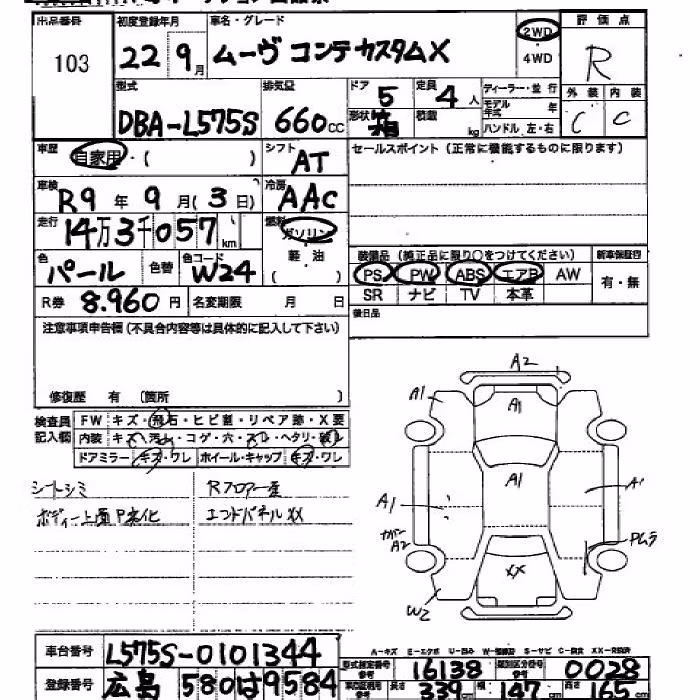 出品番号 初度登録年月 車名・グレード 評価点
103 22 9月 ムーヴ コンテ カスタムX 2WD 4WD R
型式 排気量 ドア 定員 ディーラー・並行 外装 内装
DBA-L575S 660cc 5 4人 モデル年式 年 C C
形状 積載 kg ハンドル 左・右
車歴 自家用・( ) シフト AT セールスポイント(正常に機能するものに限ります)
車検 R9年 9月(3日) 冷房 AAC
走行 14万3千057km 燃料 ガソリン
軽・油
( )
色 パール 色替 色コード W24
装備品(純正品に限り○をつけてください) 新車保証書
PS PW ABS エアB AW 有・無
SR ナビ TV 本革
R券 8.960円 名変期限 月 日
後日品
注意事項申告欄(不具合内容等は具体的に記入して下さい)
修復歴 有 〔箇所 〕
検査員記入欄 FW キズ・飛石・ヒビ割・リペア跡・X要
内装 キズ・汚れ・コゲ・穴・スレ・ヘタリ・破れ
ドアミラー キズ・ワレ ホイール・キャップ キズ・ワレ
シートシミ Rフロアー歪
ボディー上面P劣化 エンドパネルXX
A2
A1 A1
A1
A1 A1
A2
XX
W2
A-キズ E-エクボ U-凹み W-補修跡 S-サビ C-腐食 XX-交換済
車台番号 L575S-0101344
型式指定番号 16138 類別区分番号 0028
登録番号 広島 580 は 9584
長さ 339cm 幅 147cm 高さ 165cm